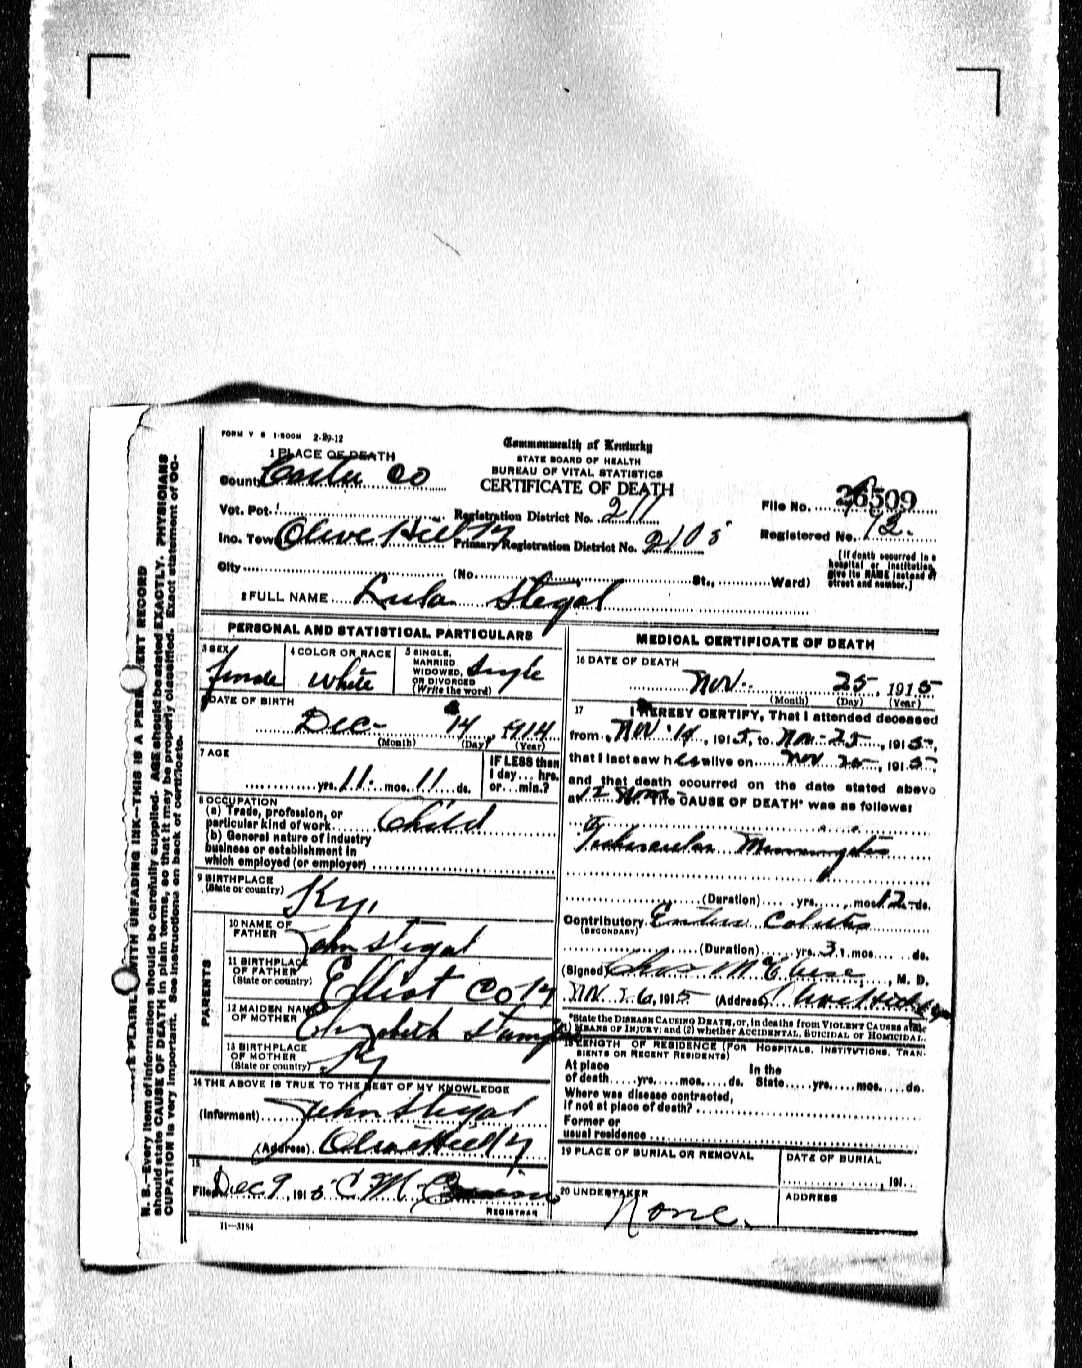 FORM V S 1-500M 2-29-12
Commonwealth of Kentucky
STATE BOARD OF HEALTH
BUREAU OF VITAL STATISTICS
CERTIFICATE OF DEATH
1 PLACE OF DEATH
County Carter Co
Vot. Pct.
Registration District No. 211
File No. 26509
Ino. Town Olive Hill Ky
Primary Registration District No. 2105
Registered No. 12.
City (No. St., Ward)
[If death occurred in a hospital or institution, give its NAME instead of street and number.]
2 FULL NAME Lula Stegal
PERSONAL AND STATISTICAL PARTICULARS
3 SEX female
4 COLOR OR RACE White
5 SINGLE, MARRIED, WIDOWED, OR DIVORCED (Write the word) Single
DATE OF BIRTH
Dec- 14, 1914
(Month) (Day) (Year)
7 AGE
yrs. 11. mos. 11 ds.
IF LESS than 1 day... hrs. or... min.?
8 OCCUPATION
(a) Trade, profession, or
particular kind of work Child
(b) General nature of industry
business or establishment in
which employed (or employer)
9 BIRTHPLACE
(State or country) Ky.
PARENTS
10 NAME OF FATHER John Stegal
11 BIRTHPLACE OF FATHER (State or country) Elliot Co Ky
12 MAIDEN NAME OF MOTHER Elizabeth Stamper
13 BIRTHPLACE OF MOTHER (State or country) Ky
14 THE ABOVE IS TRUE TO THE BEST OF MY KNOWLEDGE
(Informant) John Stegal
(Address) Olive Hill Ky
15
Filed Dec 9, 1915 C M
REGISTRAR
11-3184
MEDICAL CERTIFICATE OF DEATH
16 DATE OF DEATH
Nov. 25, 1915
(Month) (Day) (Year)
17 I HEREBY CERTIFY, That I attended deceased
from Nov. 14, 1915, to Nov-25, 1915,
that I last saw her alive on Nov 25, 1915,
and that death occurred on the date stated above
at 12 m. The CAUSE OF DEATH* was as follows:
Tubercular Menningitis
(Duration) yrs. mos. 12 ds.
Contributory Entero Colitis
(SECONDARY)
(Duration) yrs. 3 mos. ds.
(Signed) Chas M, M. D.
Nov 26, 1915 (Address) Olive Hill Ky
*State the DISEASE CAUSING DEATH, or, in deaths from VIOLENT CAUSES state
(1) MEANS OF INJURY; and (2) whether ACCIDENTAL, SUICIDAL or HOMICIDAL.
18 LENGTH OF RESIDENCE (FOR HOSPITALS, INSTITUTIONS, TRAN-
SIENTS OR RECENT RESIDENTS)
At place of death yrs. mos. ds. In the State yrs. mos. ds.
Where was disease contracted,
if not at place of death?
Former or
usual residence
19 PLACE OF BURIAL OR REMOVAL
DATE OF BURIAL
, 191
20 UNDERTAKER
None.
ADDRESS
N. B.—Every item of information should be carefully supplied. AGE should be stated EXACTLY. PHYSICIANS
should state CAUSE OF DEATH in plain terms, so that it may be properly classified. Exact statement of OC-
CUPATION is very important. See instructions on back of certificate.
WITH UNFADING INK—THIS IS A PERMANENT RECORD